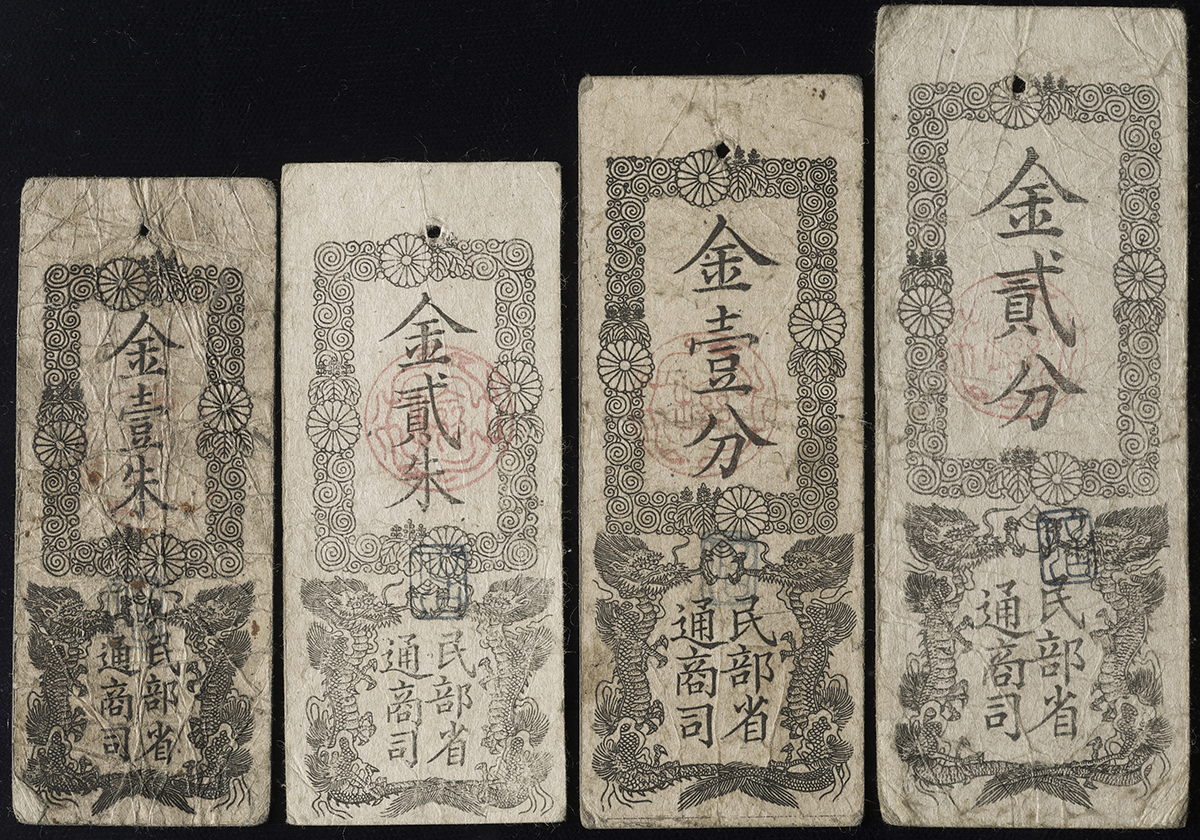 金壹朱
民部省
通商司
金貳朱
民部省
通商司
金壹分
民部省
通商司
金貳分
民部省
通商司